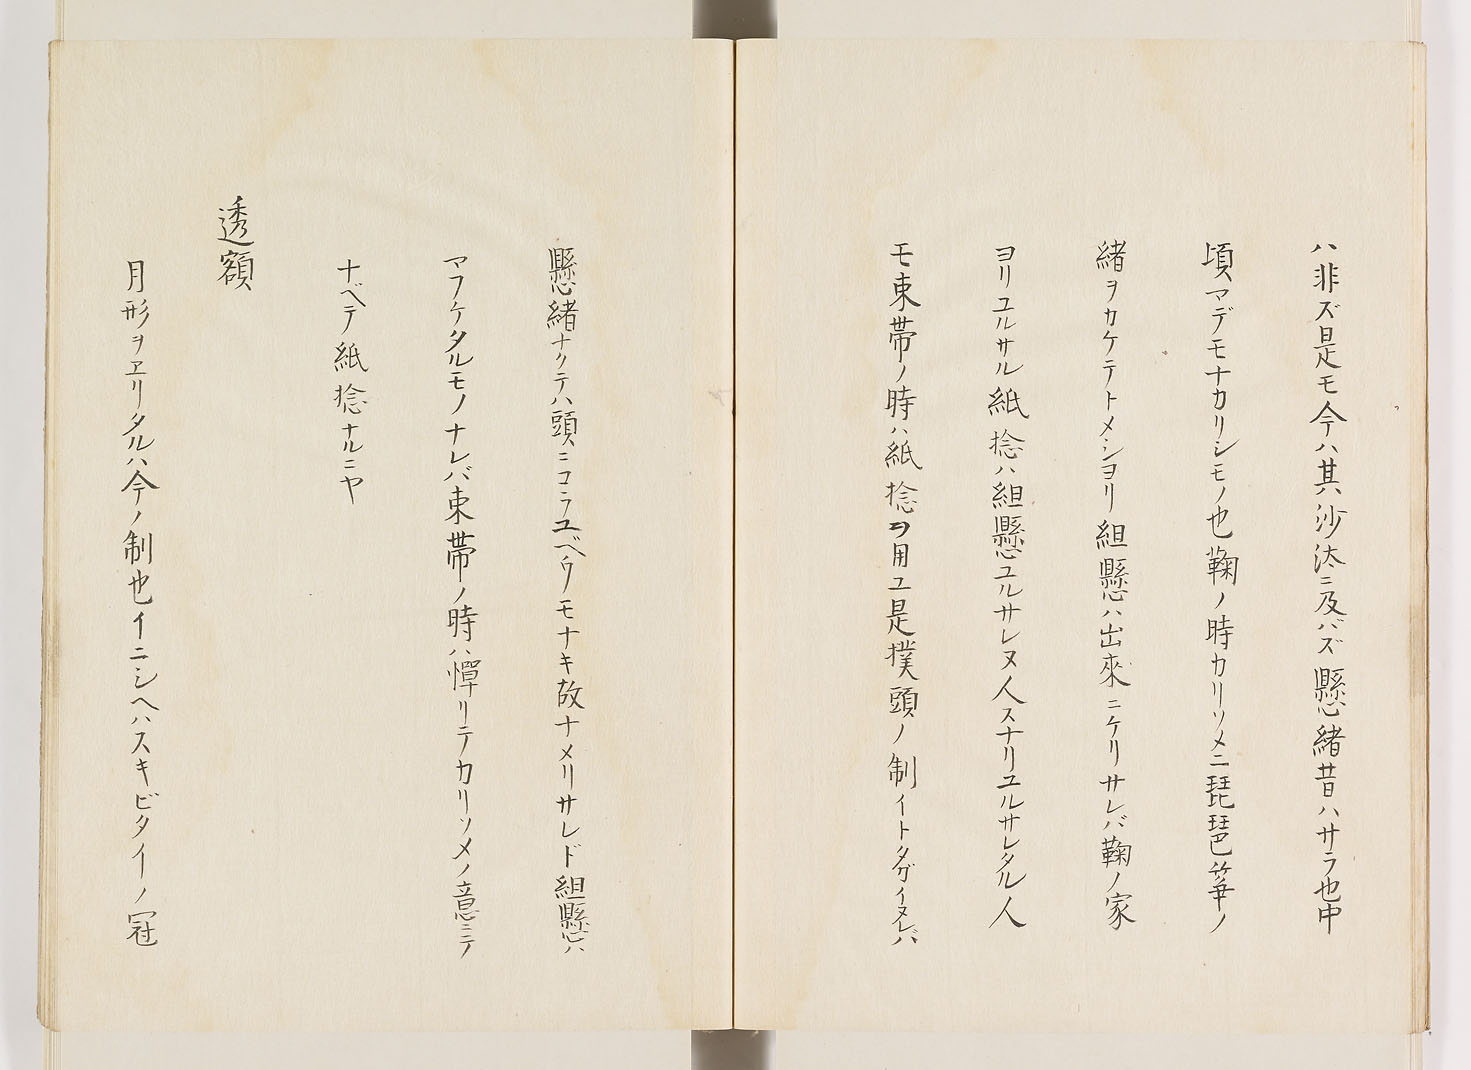 ハ非ズ是モ今ハ其沙汰ニ及バズ懸緒昔ハサラ也中
頃マデモナカリシモノ也鞠ノ時カリソメニ琵琶箏ノ
緒ヲカケテトメシヨリ組懸ハ出來ニケリサレバ鞠ノ家
ヨリユルサル紙捻ハ組懸ユルサレヌ人スナリユルサレタル人
モ束帯ノ時ハ紙捻ヲ用ユ是撲頭ノ制イトタガイヌレバ
懸緒ナクテハ頭ニコラユベウモナキ故ナメリサレド組懸ハ
マフケタルモノナレバ束帯ノ時ハ憚リテカリソメノ意ニテ
ナベテ紙捻ナルニヤ
透額
月形ヲヱリタルハ今ノ制也イニシヘハスキビタイノ冠